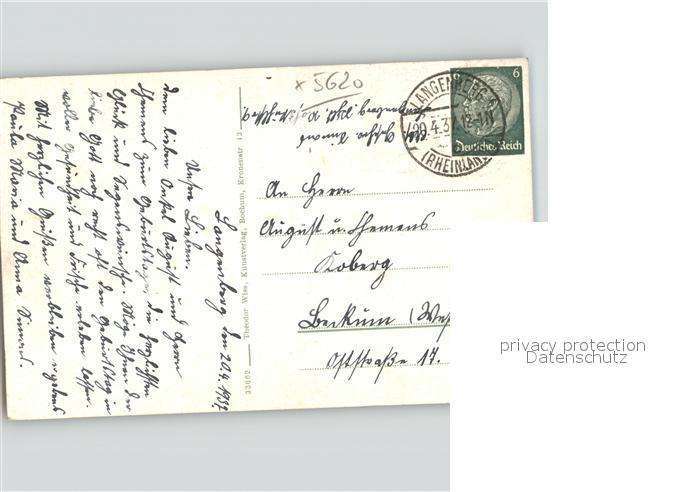 * 5620
LANGENBERG
20.4.37.12-
(RHEINLAND)
6
Deutsches Reich
An Herrn
August u. Clemens
Koberg
Beckum (We
Oststraße 17.
Langenberg den 20.4.1937
Unsere Lieben.
dem lieben Onkel August und Herrn
Clemens zum Geburtstage, die herzlichsten
Glück und Segenswünsche. Möge Ihnen der
liebe Gott noch recht oft den Geburtstag in
voller Gesundheit und Frische erleben lassen.
Mit herzlichen Grüßen verbleiben ergebenst
Paula Maria und Anna Simons.
33062 — Theodor Wiss, Kunstverlag, Bochum, Kronenstr. 12
privacy protection
Datenschutz